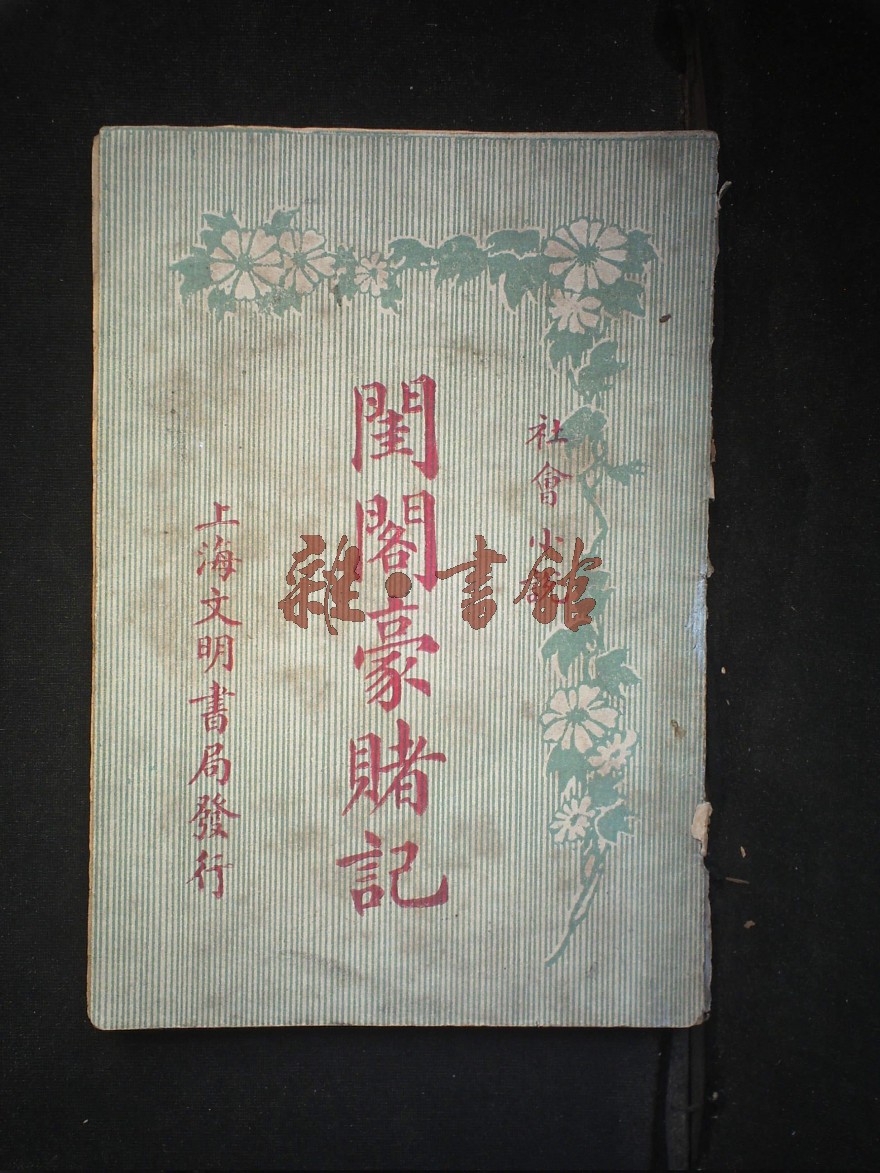 社會小說
閨閣豪賭記
上海文明書局發行
雜·書館